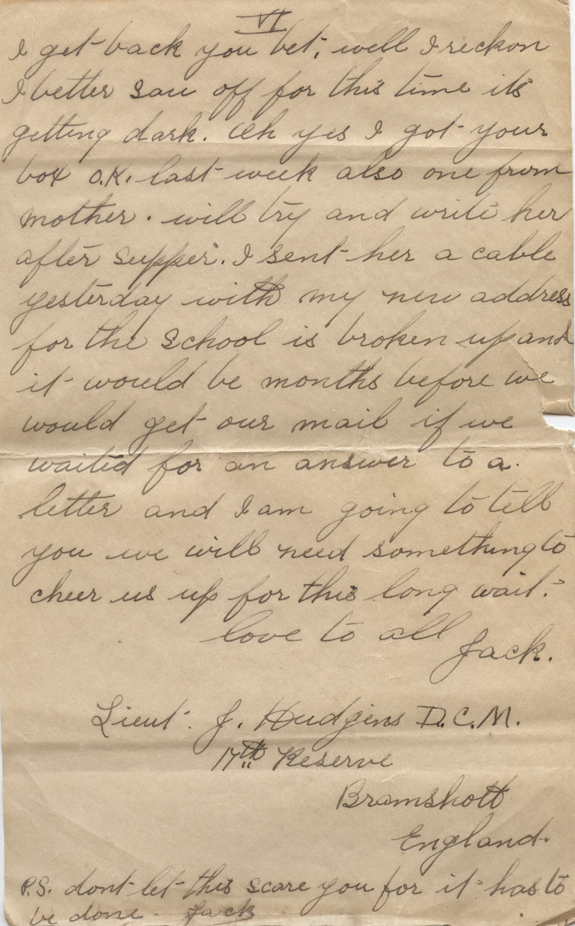 VI
I get back you bet, well I reckon
I better saw off for this time its
getting dark. Oh yes I got your
box O.K. last week also one from
mother. will try and write her
after supper. I sent her a cable
yesterday with my new address
for the school is broken up and
it would be months before we
would get our mail if we
waited for an answer to a
letter and I am going to tell
you we will need something to
cheer us up for this long wait.
love to all
Jack.
Lieut. J. Hudgins D.C.M.
17th Reserve
Bramshott
England.
P.S. dont let this scare you for it has to
be done. Jack